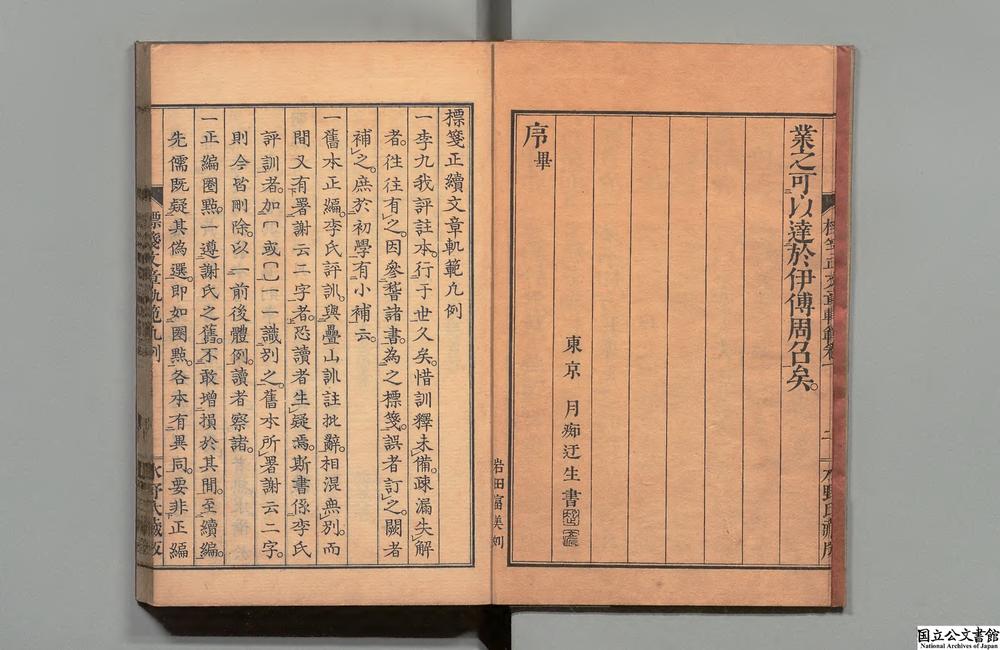 業之可以達於伊傅周召矣。
東京 月痴迂生書
序畢
岩田富美刻
標箋正續文章軌範九例
一李九我評註本。行于世久矣。惜訓釋未備。疎漏失解
者。往往有之。因參諸書。為之標箋。誤者訂之。闕者
補之。庶於初學有小補云。
一舊本正編。李氏評訓。與疊山訓註批辭。相混無別。而
間又有署謝云二字者。恐讀者生疑焉。斯書係李氏
評訓者。加〔或〔〕一一識別之。舊本所署謝云二字。
則今皆刪除。以一前後體例。讀者察諸。
一正編圈點。一遵謝氏之舊。不敢增損於其間。至續編。
先儒既疑其偽選。即如圈點。各本有異同。要非正編
標箋文章軌範凡例
水野氏藏版
水野氏藏版
国立公文書館
National Archives of Japan